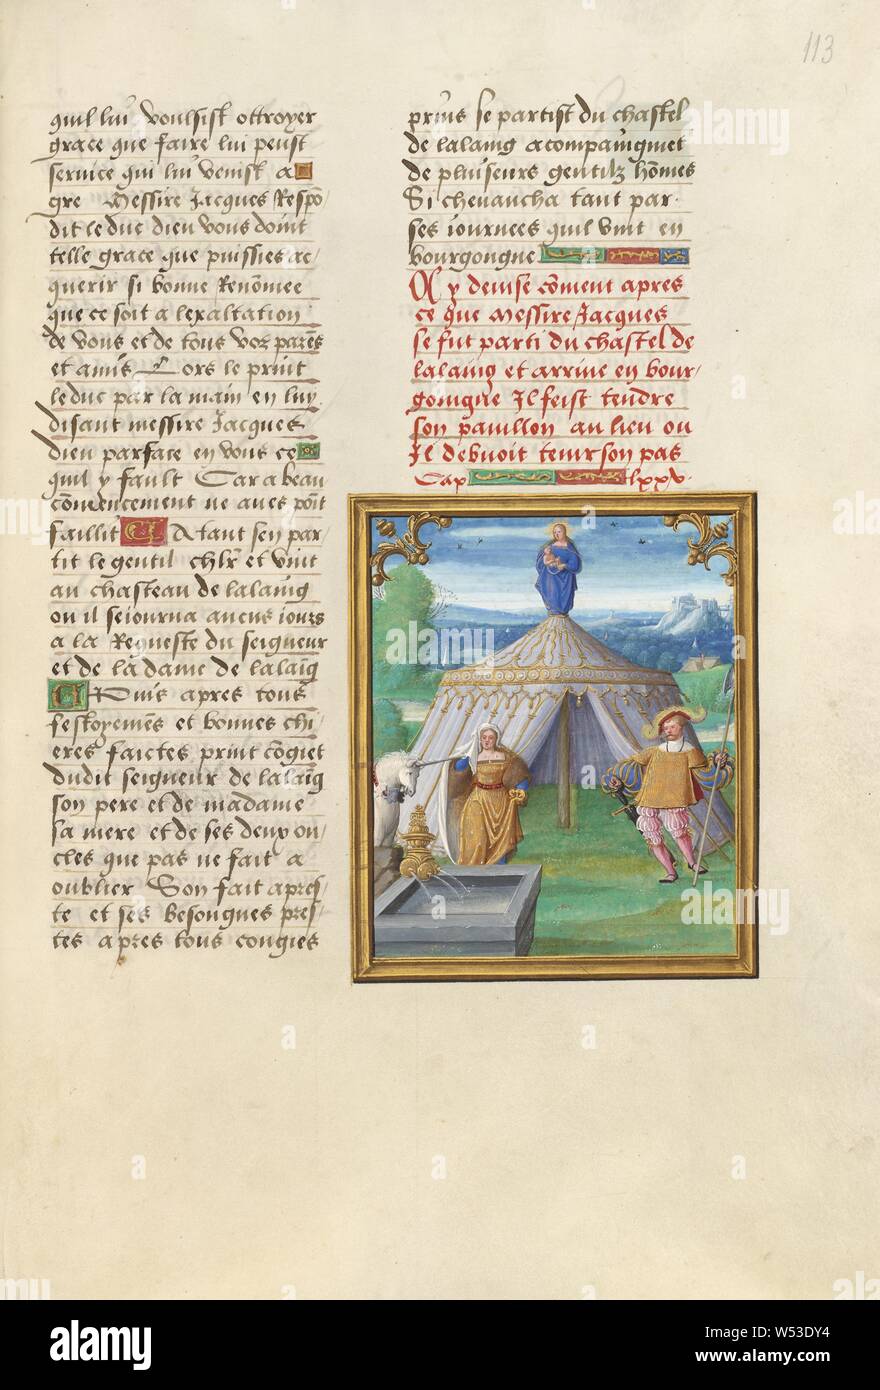 113
quil lui voulsist ottroyer
grace que faire lui peust
seruice qui lui venist a
gre Messire Jacques Respo
dit le duc dieu vous doint
telle grace que puissies ac
querir si bonne Renomee
que ce soit a lexaltation
de vous et de tous voz pares
et amis Lors le print
le duc par la main en luy
disant messire Jacques
dieu parface en vous ce
quil y fault Car a beau
comencement ne aues poit
failli A tant sen par
tit le gentil chlr et vint
au chasteau de lalaing
ou il seiourna aucus iours
a la Requeste du seigneur
et de la dame de lalaig
Puis apres tous
festoyemens et bonnes chi
eres faictes print cogiet
dudit seigneur de lalaig
son pere et de madame
sa mere et de ses deux on
cles que pas ne fait a
oublier Son fait apres
te et ses besongnes pres
tes apres tous congies
prins se partist du chastel
de lalaing acompaigniet
de pluiseurs gentilz homes
Si cheuaucha tant par
ses iournees quil vint en
bourgongne
Cy deuise coment apres
ce que messire Jacques
se fut parti du chastel de
lalaing et arriue en bour
goingne Il feist tendre
son pauillon au lieu ou
Il debuoit tenir son pas
Cap lxxv
alamy
Image ID: W53DY4
www.alamy.com